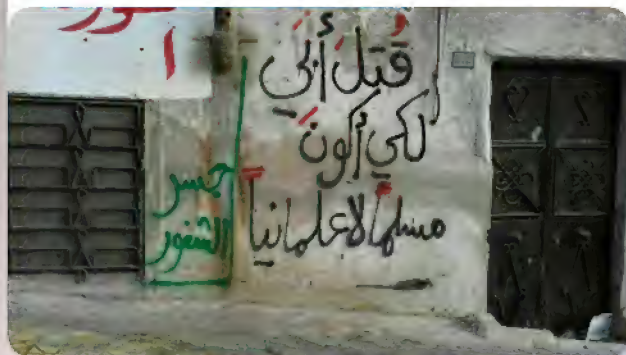 قُتِلَ أَبِي
لِكَي أكونَ
مسلماً لا علمانياً
جسر
الشغور